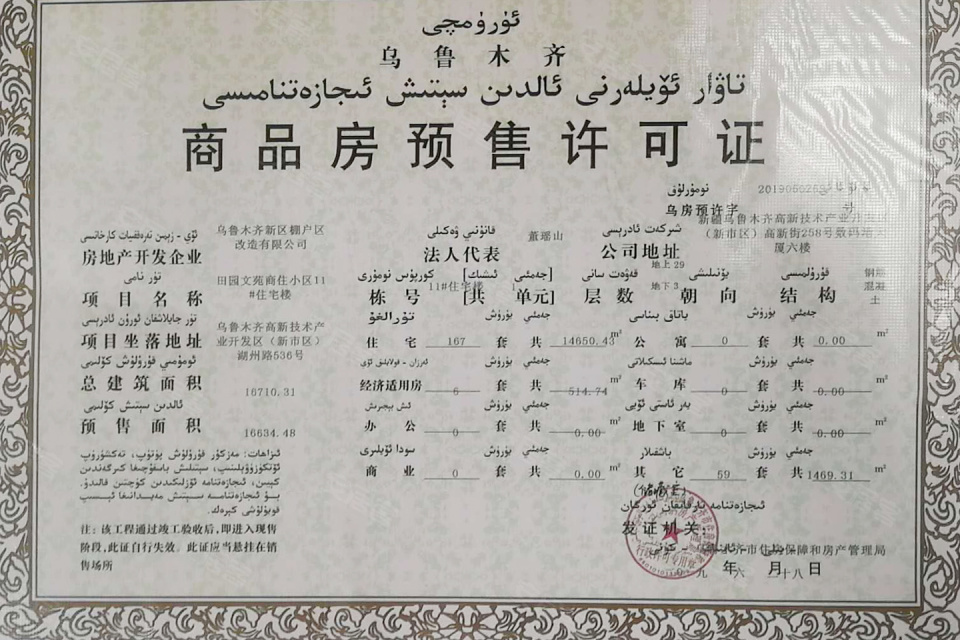 ئۈرۈمچى
乌鲁木齐
تاۋار ئۆيلەرنى ئالدىن سېتىش ئىجازەتنامىسى
商品房预售许可证
نومۇرلۇق
乌房预许字 号
ئۆي - زېمىن تەرەققىيات كارخانىسى
房地产开发企业
乌鲁木齐新区棚户区
改造有限公司
قانۇنىي ۋەكىلى
法人代表
董瑶山
شىركەت ئادرېسى
公司地址
新疆乌鲁木齐高新技术产业开发区
（新市区）高新街258号数码港大
厦六楼
تۈر نامى
项目名称
田园文苑商住小区11
#住宅楼
كورپۇس نومۇرى [جەمئىي ئىشىك]
栋号 [共 单元]
11#住宅楼 1
قەۋەت سانى
层数
地上29
地下3
يۆنىلىشى
朝向
قۇرۇلمىسى
结构
تۈر جايلاشقان ئورۇن ئادرېسى
项目坐落地址
乌鲁木齐高新技术产
业开发区（新市区）
湖州路536号
تۇرالغۇ يۈرۈش جەمئىي
住宅 167 套 共 14650.43 m²
باتاق بىناسى يۈرۈش جەمئىي
公寓 0 套 共 0.00 m²
ئومۇمىي قۇرۇلۇش كۆلىمى
总建筑面积 16710.31
يۈرۈش جەمئىي
经济适用房 6 套 共 514.74 m²
ماشىنا ئىسكىلاتى يۈرۈش جەمئىي
车库 0 套 共 0.00 m²
ئالدىن سېتىش كۆلىمى
预售面积 16634.48
ئىش بېجىرىش يۈرۈش جەمئىي
办公 0 套 共 0.00 m²
يەر ئاستى ئۆيى يۈرۈش جەمئىي
地下室 0 套 共 0.00 m²
سودا ئۆيلىرى يۈرۈش جەمئىي
商业 0 套 共 0.00 m²
باشقىلار يۈرۈش جەمئىي
其它 59 套 共 1469.31 m²
(储藏室)
注：该工程通过竣工验收后，即进入现售
阶段，此证自行失效。此证应当悬挂在销
售场所
ئىجازەتنامە تارقاتقان ئورگان
发证机关：
乌鲁木齐市住房保障和房产管理局
九 年 六 月 二十八 日